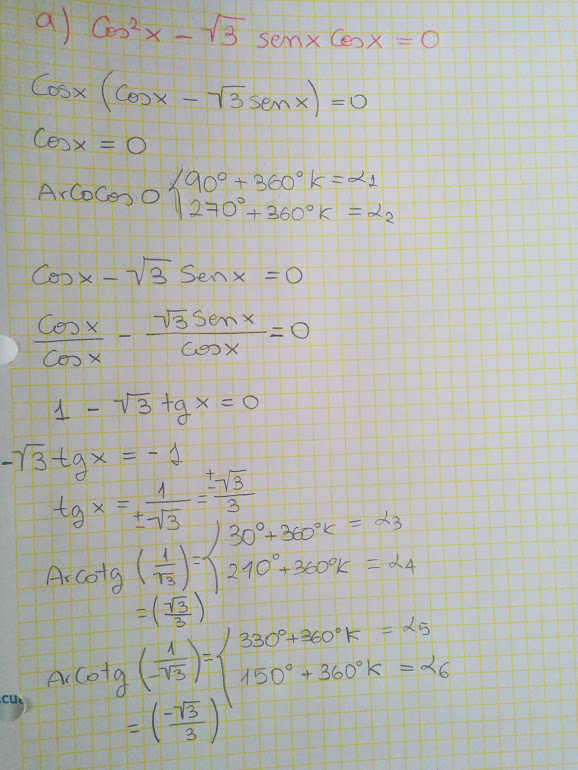 a) Cos²x - √3 senx Cosx = 0
Cosx (Cosx - √3 senx) = 0
Cosx = 0
ArcoCos 0 { 90° + 360°K = α1
270° + 360°K = α2
Cosx - √3 Senx = 0
Cosx/Cosx - √3 Senx/cosx = 0
1 - √3 tgx = 0
-√3 tgx = -1
tgx = 1/±√3 = ±√3/3
Arcotg (1/√3) = { 30° + 360°K = α3
210° + 360°K = α4
= (√3/3)
Arcotg (1/-√3) = { 330° + 360°K = α5
150° + 360°K = α6
= (-√3/3)